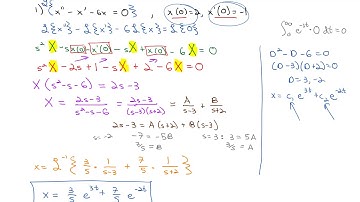 1) ℒ{x'' - x' - 6x = 0}, x(0)=2, x'(0)=-1
ℒ{x''} - ℒ{x'} - 6ℒ{x} = ℒ{0}
s²X - s x(0) - x'(0) - sX + x(0) - 6X = 0
s²X - 2s + 1 - sX + 2 - 6X = 0
X(s²-s-6) = 2s-3
X = 2s-3/s²-s-6 = 2s-3/(s-3)(s+2) = A/s-3 + B/s+2
2s-3 = A(s+2) + B(s-3)
s=-2 -7=-5B s=3: 3=5A
7/5=B 3/5=A
x = ℒ⁻¹{3/5 · 1/s-3 + 7/5 · 1/s+2}
x = 3/5 e^3t + 7/5 e^-2t
∫₀^∞ e^-st · 0 dt = 0
D²-D-6=0
(D-3)(D+2)=0
D=3,-2
x = c₁e^3t + c₂e^-2t